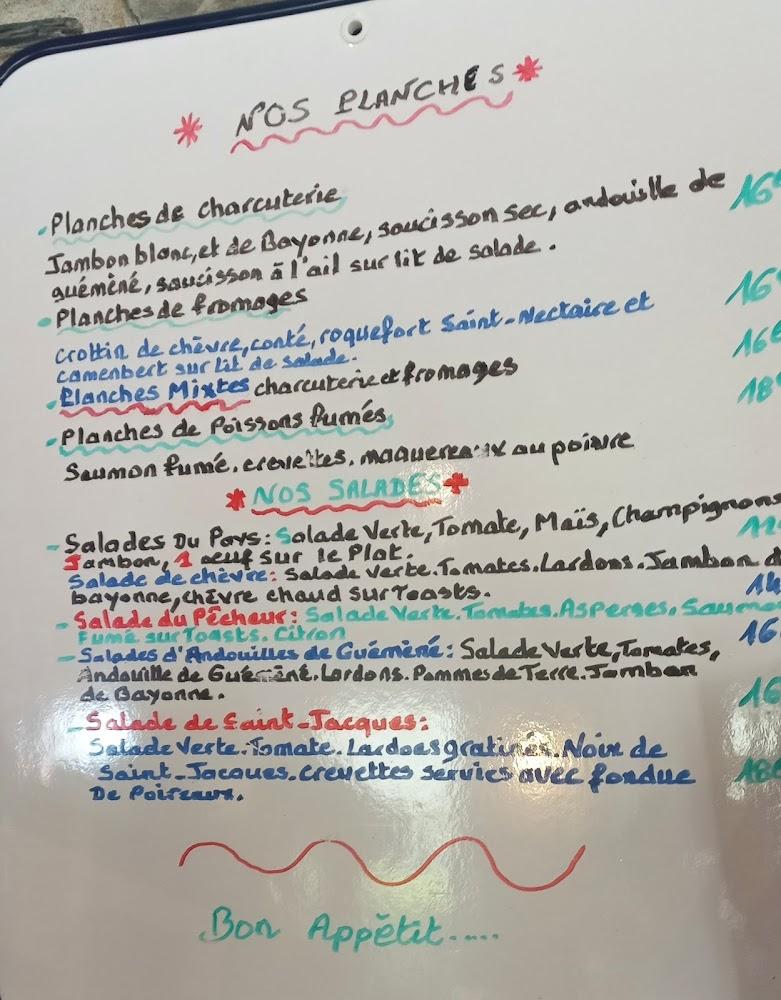 * NOS PLANCHES *
. Planches de charcuterie 16€
Jambon blanc, et de Bayonne, saucisson sec, andouille de
guéméné, saucisson à l'ail sur lit de salade.
. Planches de fromages 16€
crottin de chèvre, conté, roquefort Saint-Nectaire et
camenbert sur lit de salade.
. Planches Mixtes charcuterie et fromages 16€
. Planches de Poissons fumés 18€
Saumon fumé. crevettes. maquereaux au poivre
* NOS SALADES *
- Salades Du Pays: Salade Verte, Tomate, Maïs, Champignons
Jambon, 1 oeuf sur le Plat.
Salade de chèvre: Salade verte. Tomates. Lardons. Jambon
bayonne, chèvre chaud sur Toasts.
- Salade du Pêcheur: Salade Verte. Tomates. Asperges. Saumon
Fumé sur Toasts. Citron
- Salades d'Andouilles de Guéméné: Salade Verte, Tomates, 16
Andouille de Guéméné. Lardons. Pommes de Terre. Jambon
de Bayonne.
- Salade de Saint-Jacques:
Salade Verte. Tomate. Lardons gratinés. Noix de
Saint-Jacques. crevettes servies avec fondue 18€
De Poireaux.
Bon Appétit.....